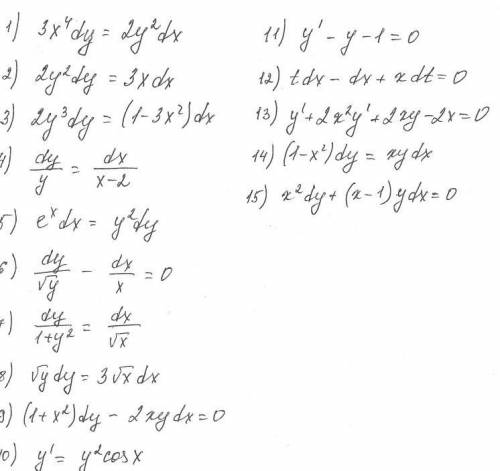 1) 3x⁴dy = 2y²dx
2) 2y²dy = 3xdx
3) 2y³dy = (1-3x²)dx
4) dy/y = dx/(x-2)
5) eˣdx = y²dy
6) dy/√y - dx/x = 0
7) dy/(1+y²) = dx/√x
8) √y dy = 3√x dx
9) (1+x²)dy - 2xydx = 0
10) y' = y²cosx
11) y' - y - 1 = 0
12) tdx - dx + xdt = 0
13) y' + 2x²y' + 2xy - 2x = 0
14) (1-x²)dy = xydx
15) x²dy + (x-1)ydx = 0